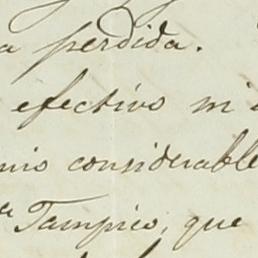 a perdida.
efectivo mi
mio considerable
Tampico, que